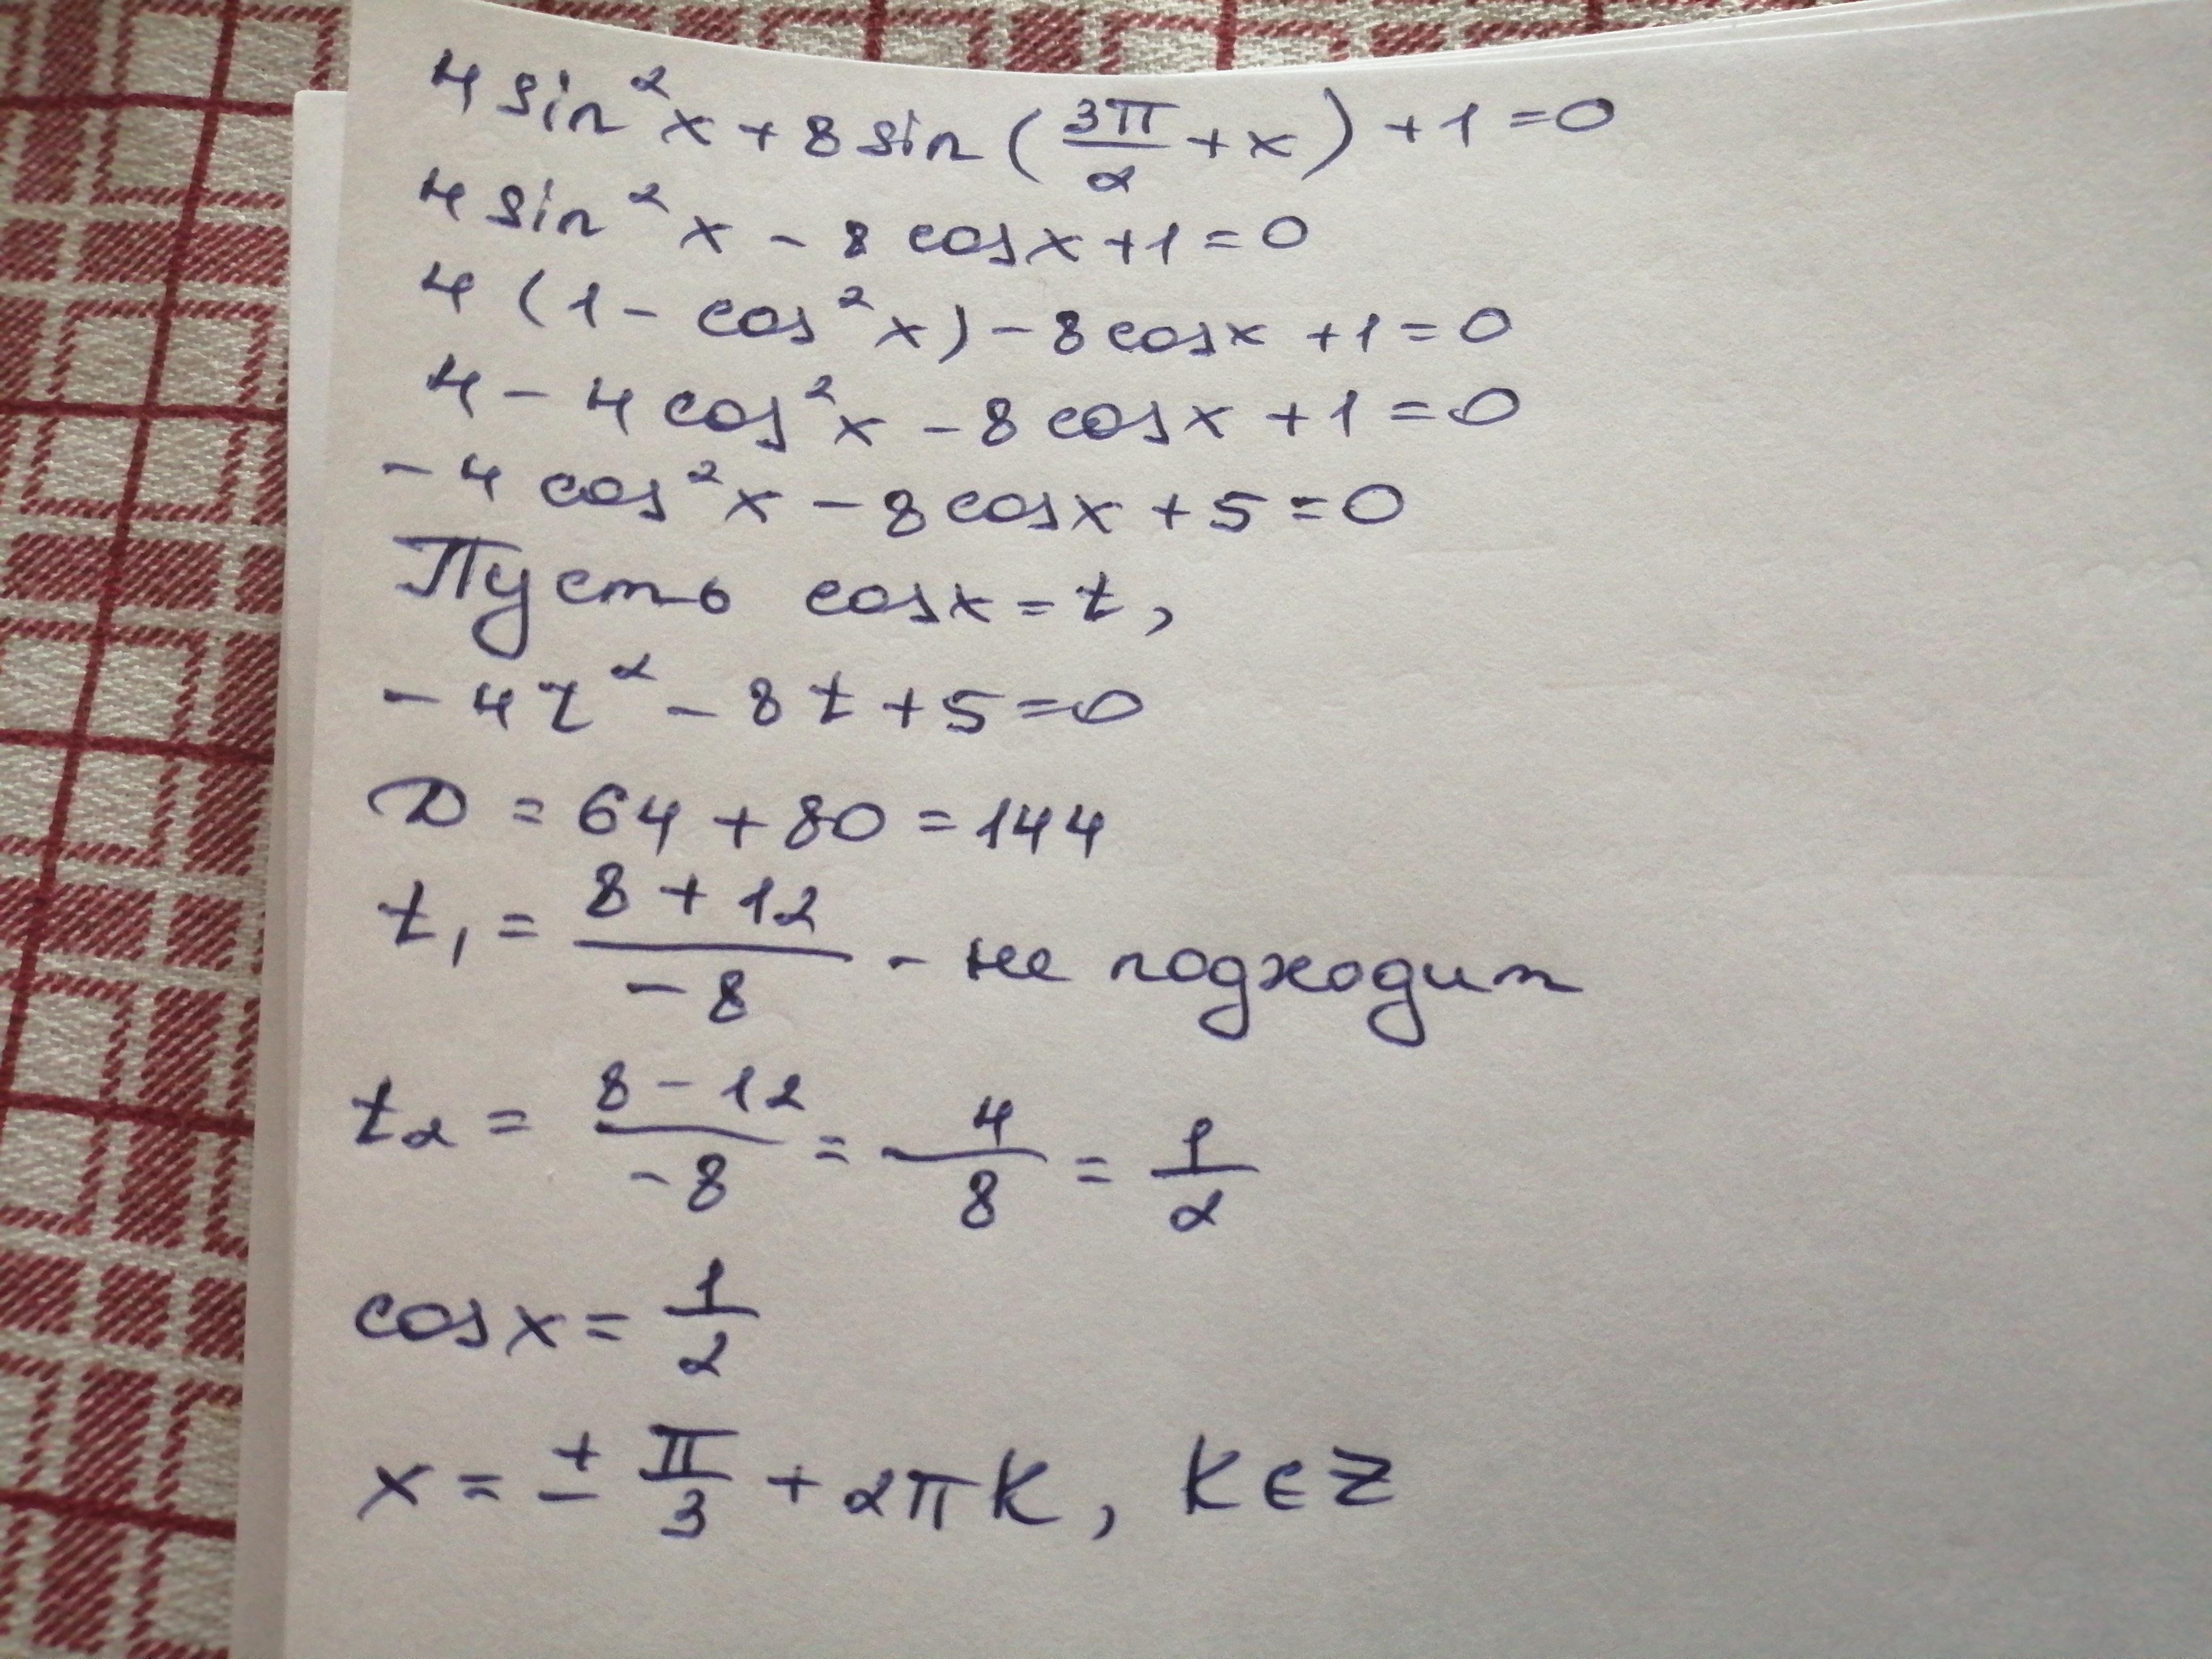 4 sin²x + 8 sin (3π/2 + x) + 1 = 0
4 sin²x - 8 cosx + 1 = 0
4 (1 - cos²x) - 8 cosx + 1 = 0
4 - 4 cos²x - 8 cosx + 1 = 0
- 4 cos²x - 8 cosx + 5 = 0
Пусть cosx = t,
- 4t² - 8t + 5 = 0
D = 64 + 80 = 144
t₁ = (8 + 12)/(-8) - не подходит
t₂ = (8 - 12)/(-8) = 4/8 = 1/2
cosx = 1/2
x = ± π/3 + 2πk, k ∈ Z